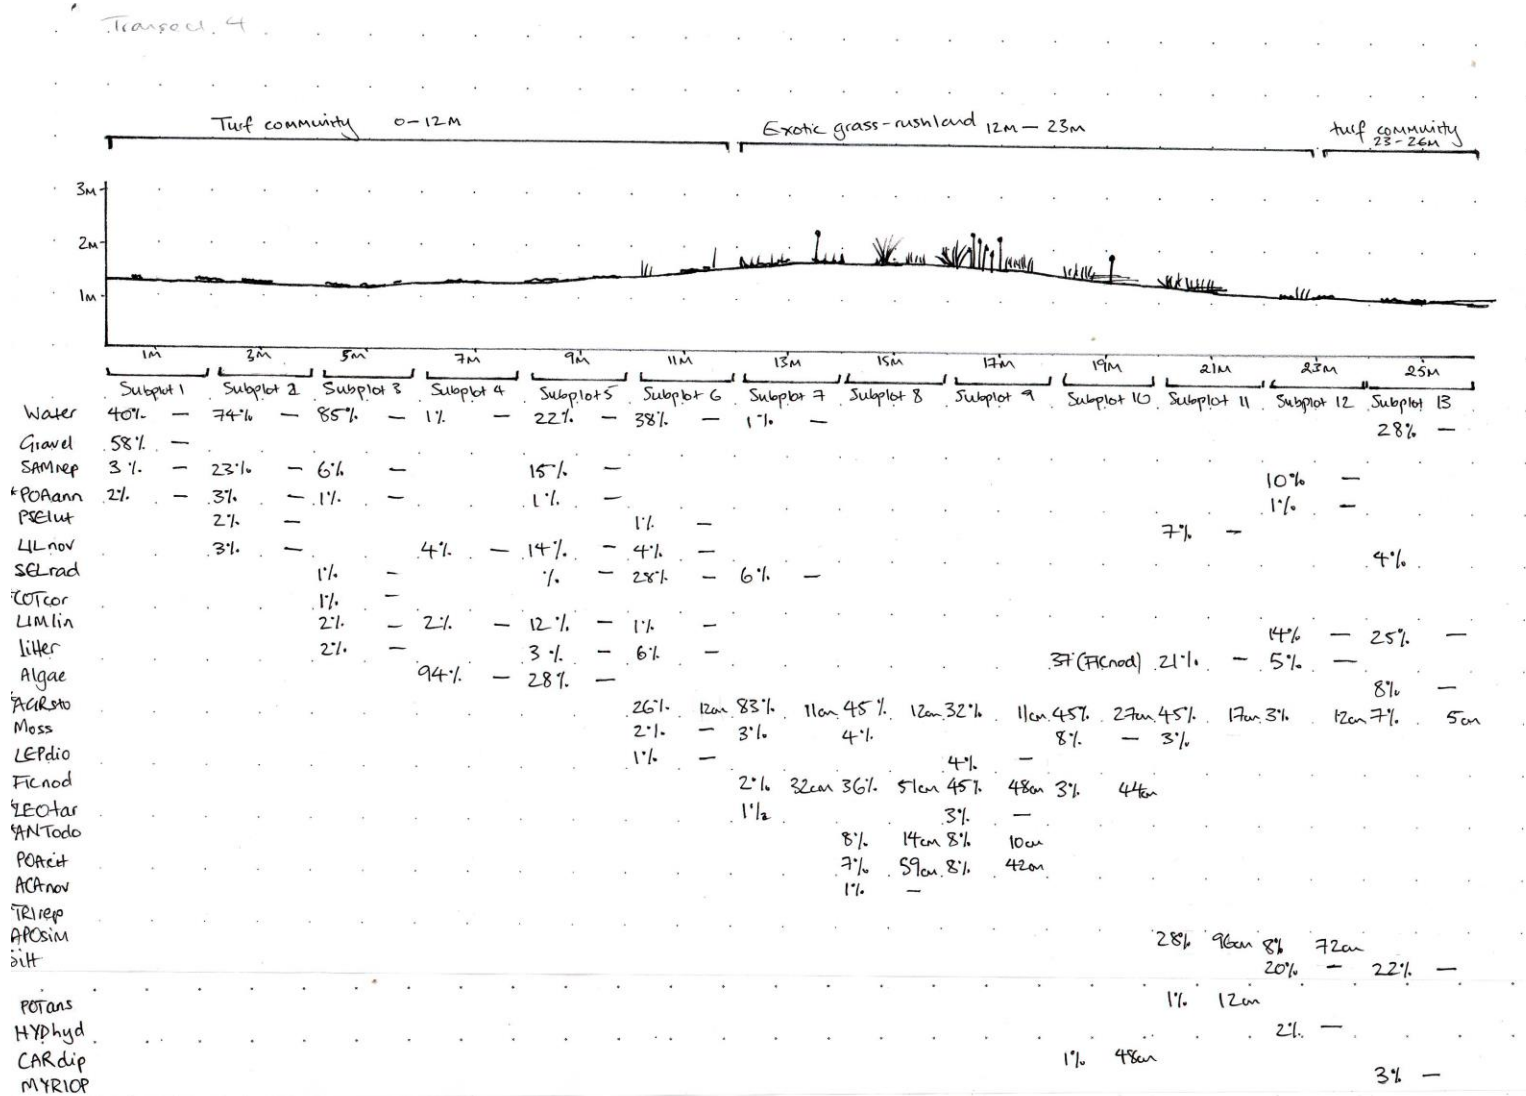 Transect 4
Turf community 0-12M Exotic grass-rushland 12M - 23M turf community
23-26M
3M
2M
1M
1M 3M 5M 7M 9M 11M 13M 15M 17M 19M 21M 23M 25M
Subplot 1 Subplot 2 Subplot 3 Subplot 4 Subplot 5 Subplot 6 Subplot 7 Subplot 8 Subplot 9 Subplot 10 Subplot 11 Subplot 12 Subplot 13
Water 40% - 74% - 85% - 1% - 22% - 38% - 1% - 28% -
Gravel 58% -
SAMrep 3% - 23% - 6% - 15% - 10% -
*POAann 2% - 3% - 1% - 1% - 1% -
PSElut 2% - 1% - 7% -
LILnov 3% - 4% - 14% - 4% - 4%
SELrad 1% - % - 28% - 6% -
COTcor 1% -
LIMlin 2% - 2% - 12% - 1% - 14% - 25% -
litter 2% - 3% - 6% - 37 (FICnod) 21% - 5% -
Algae 94% - 28% - 8% -
AGRsto 26% 12cm 83% 11cm 45% 12cm 32% 11cm 45% 27cm 45% 17cm 3% 12cm 7% 5cm
Moss 2% - 3% 4% 8% - 3%
LEPdio 1% - 4% -
FICnod 2% 32cm 36% 51cm 45% 48cm 3% 44cm
LEOtar 1% 3% -
ANTodo 8% 14cm 8% 10cm
POAcit 7% 59cm 8% 42cm
ACAnov 1% -
TRIrep
APOsim 28% 96cm 8% 72cm
Silt 20% - 22% -
POTans 1% 12cm
HYDhyd 2% -
CARdip 1% 48cm
MYRIOP 3% -